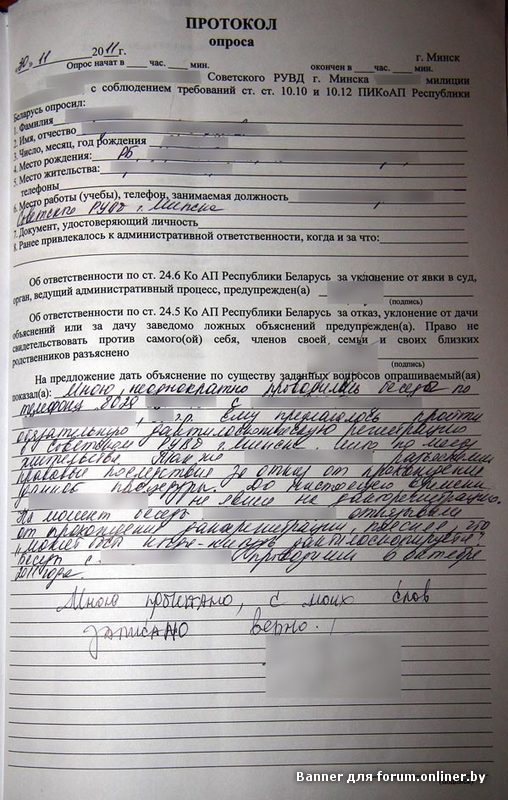 ПРОТОКОЛ
опроса
30.11 2011 г. г. Минск
Опрос начат в ___ час. ___ мин. окончен в ___ час. ___ мин.
Советского РУВД г. Минска милиции
с соблюдением требований ст. ст. 10.10 и 10.12 ПИКоАП Республики
Беларусь опросил:
1. Фамилия
2. Имя, отчество
3. Число, месяц, год рождения
4. Место рождения: РБ
5. Место жительства:
телефоны
6. Место работы (учебы), телефон, занимаемая должность
Советского РУВД г. Минска
7. Документ, удостоверяющий личность
8. Ранее привлекалось к административной ответственности, когда и за что:
Об ответственности по ст. 24.6 Ко АП Республики Беларусь за уклонение от явки в суд,
орган, ведущий административный процесс, предупрежден(а)
(подпись)
Об ответственности по ст. 24.5 Ко АП Республики Беларусь за отказ, уклонение от дачи
объяснений или за дачу заведомо ложных объяснений предупрежден(а). Право не
свидетельствовать против самого(ой) себя, членов своей семьи и своих близких
родственников разъяснено
(подпись)
На предложение дать объяснение по существу заданных вопросов опрашиваемый(ая)
показал(а): Мною неоднократно проводились беседы по
телефону 8029 с
Ему предлагалось пройти
обязательную дактилоскопическую регистрацию
в Советском РУВД г. Минска либо по месту
жительства. Также разъяснялись
правовые последствия за отказ от прохождения
данной процедуры. До настоящего времени
не явился на дакторегистрацию.
На момент беседы отказывался
от прохождения дактрегистрации, пояснив что
беседы с проводил 6 октября
2011 года.
Мною прочитано, с моих слов
записано верно.
Banner для forum.onliner.by